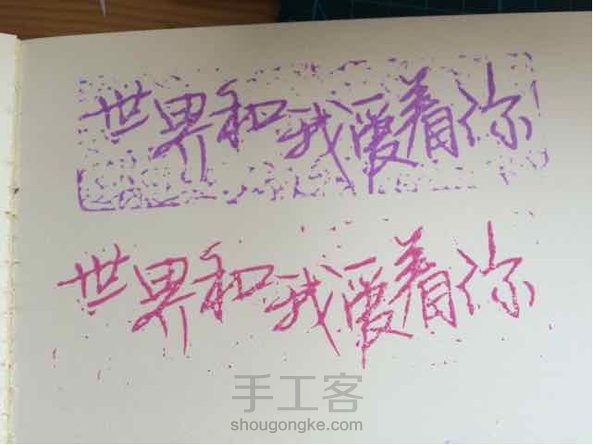 世界和我爱着你
世界和我爱着你
手工客
shougongke.com